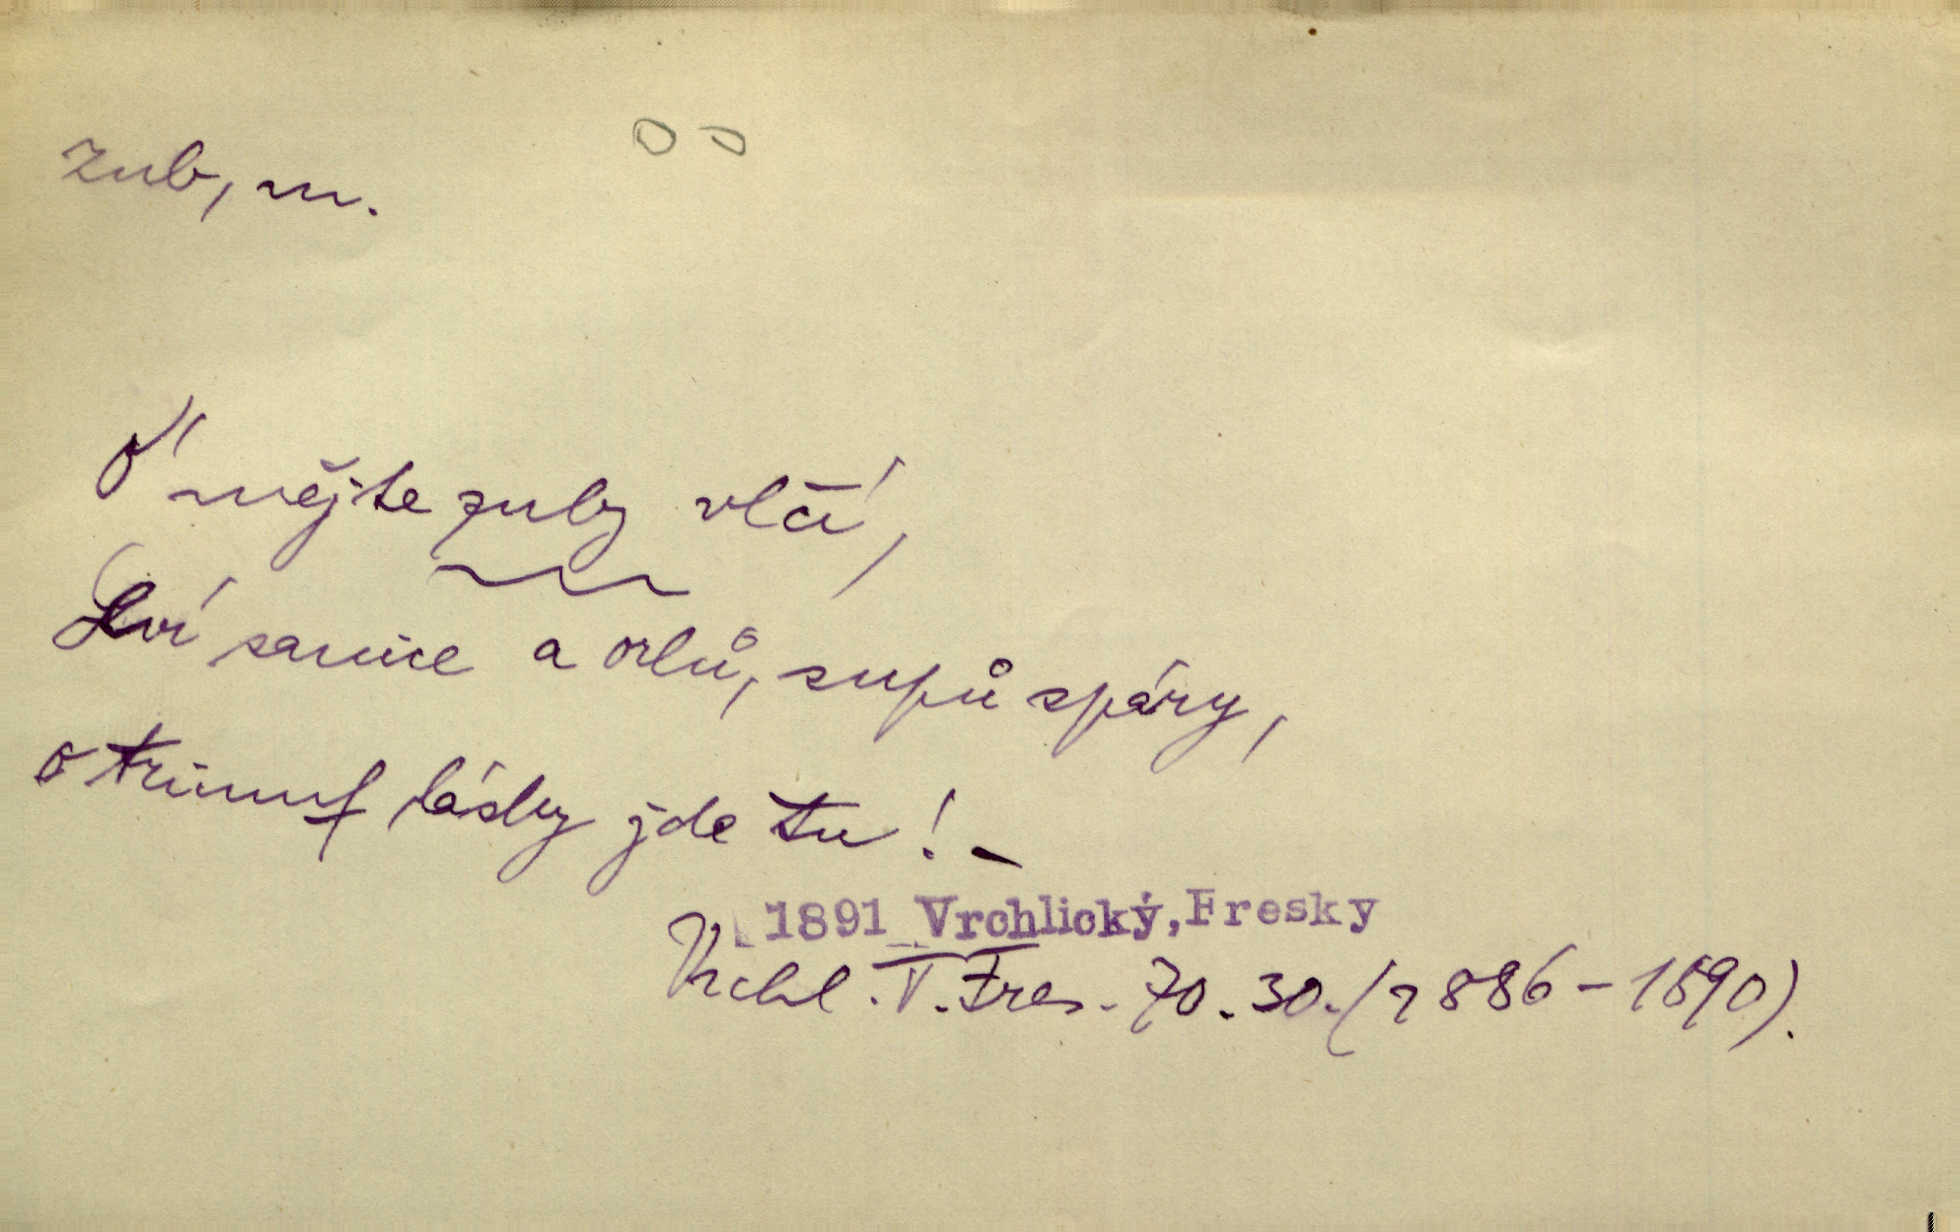 zub, m.
Ó mějte zuby vlčí,
Lví sanice a orlů, supů spáry,
o triumf lásky jde tu! –
1891 Vrchlický, Fresky
Vrchl. V. Fres. 70. 30. (1886 – 1890).